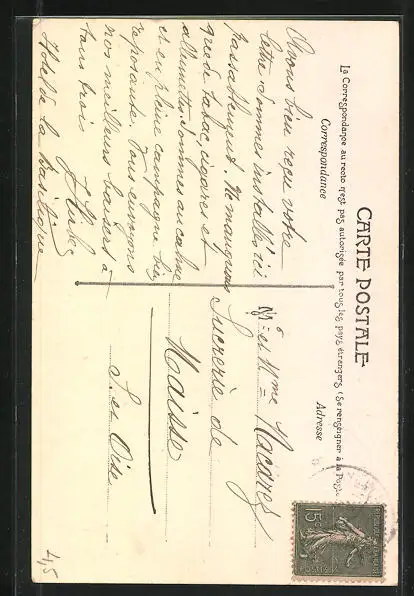 CARTE POSTALE
La Correspondance au recto n'est pas autorisée par tous les pays étrangers (Se renseigner à la Poste
Correspondance
Adresse
Avons bien reçu votre
lettre sommes installés ici
passablement. Ne manquons
que de tabac, cigares et
allumettes sommes au calme
et en pleine campagne très
reposante. Vous envoyons
nos meilleurs baisers à
tous trois
Hotel de la Basilique
M. et Mme
Sucrerie de
Maisse
S. et Oise
15c
4,5